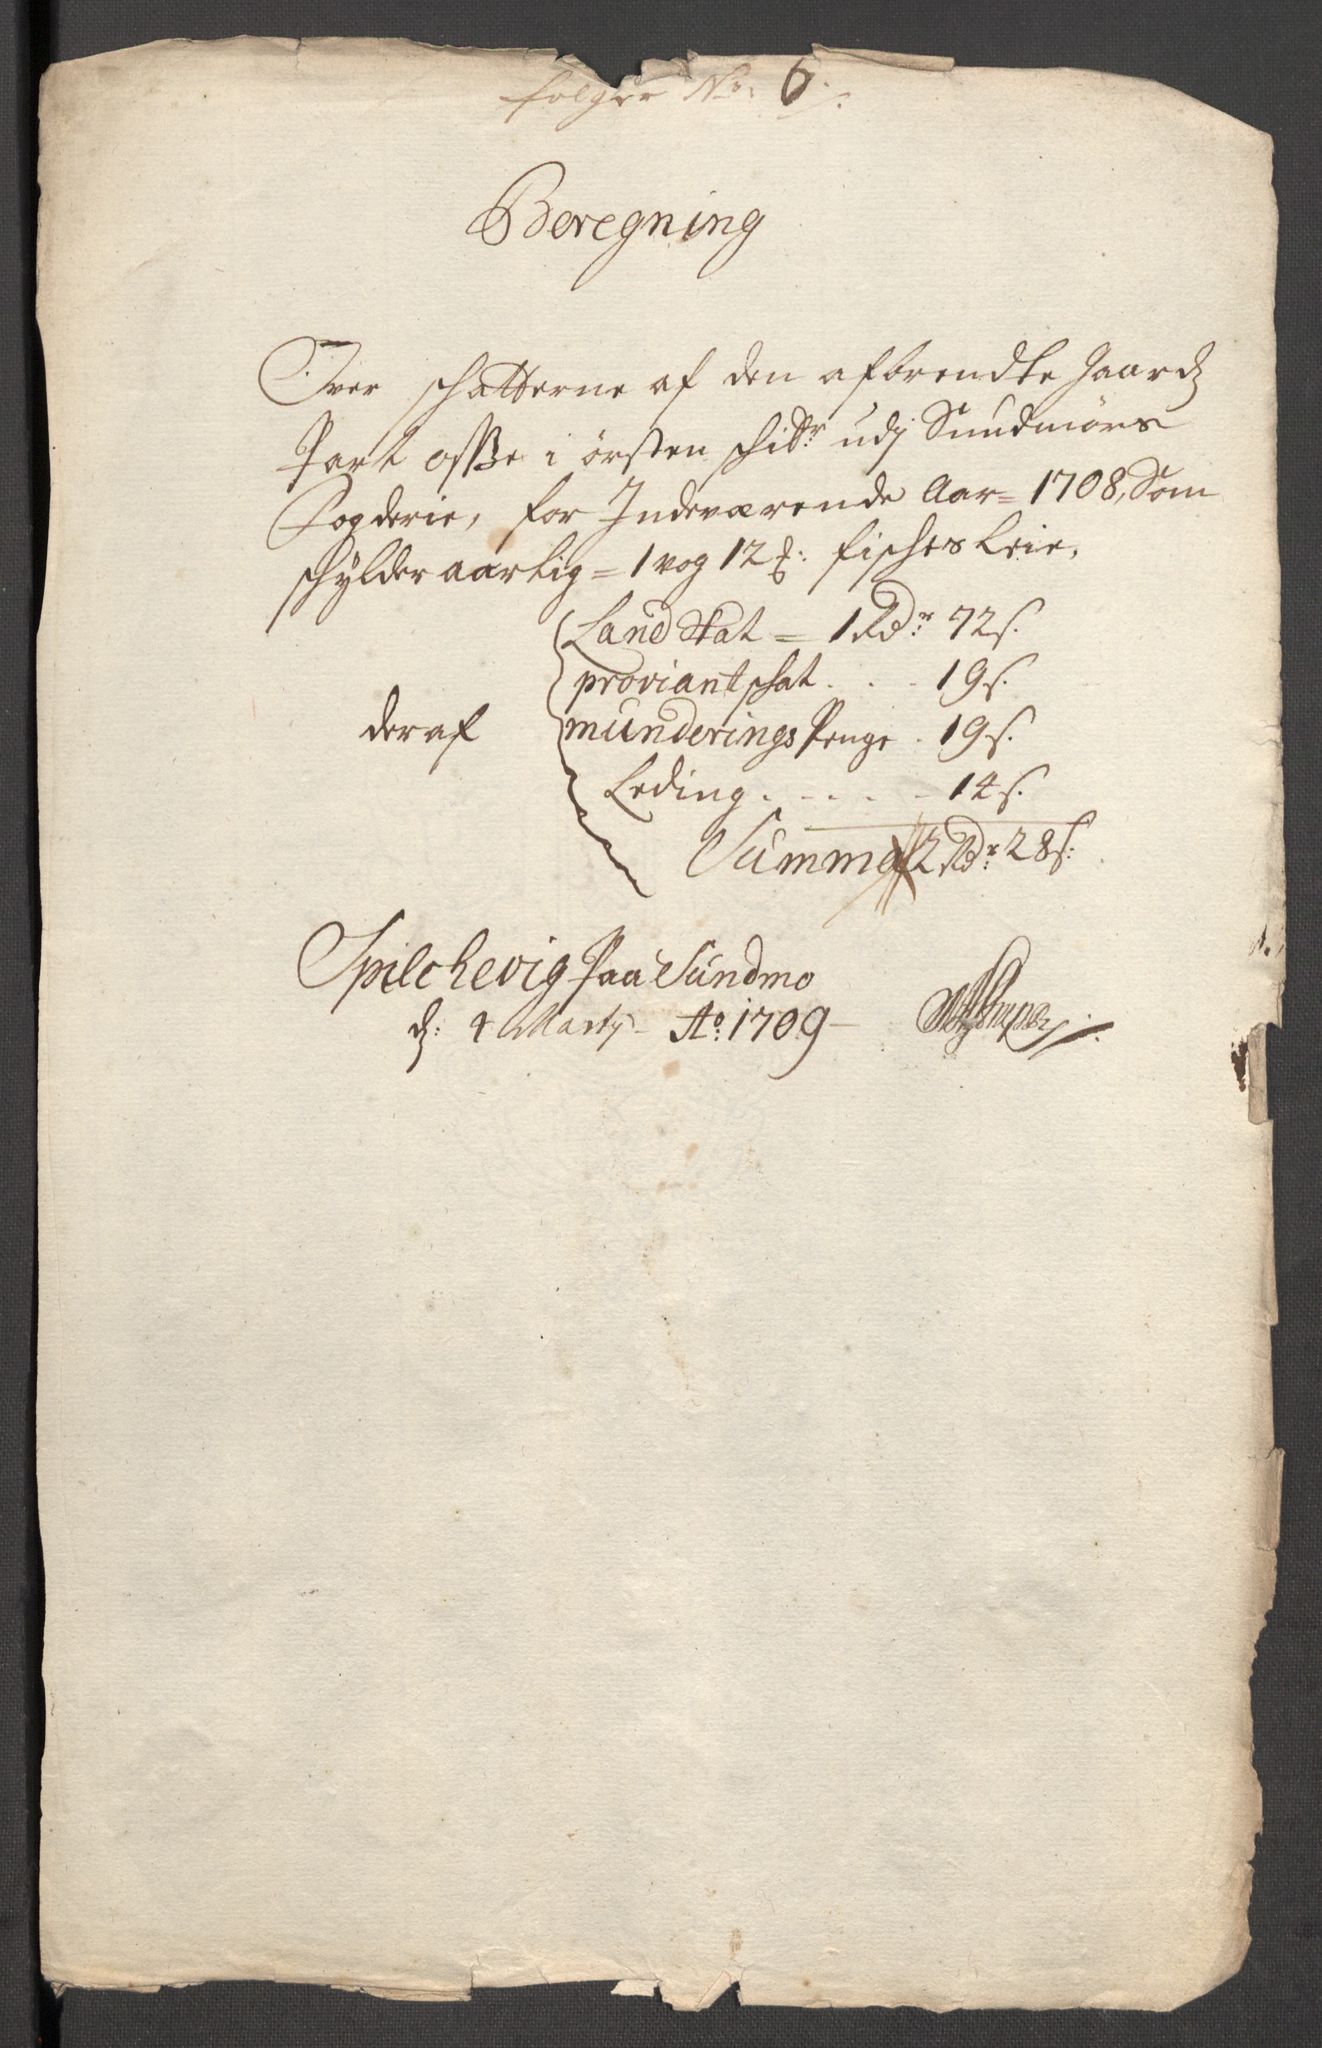 følger No: 6./.
Beregning
Over schatterne af den afbrendte Gaards
Part Osße i Ørsten schibr: udj Sundmørs
Fogderie, for Indeværende Aar = 1708, Som
schylder aarlig = 1 vog 12 fischesleie,
Landskat = 1 Rdr: 72 s.
proviantschat . . . 19 s.
deraf munderings Penge . 19 s.
Leding . . . . . 14 s.
Summa 2 Rdr: 28 s:
Spilchevig Paa Sundmo
d: 4 Marty Ao: 1709